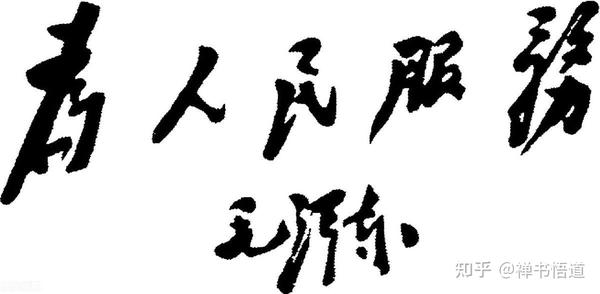 為人民服務
毛泽东
知乎 @禅书悟道